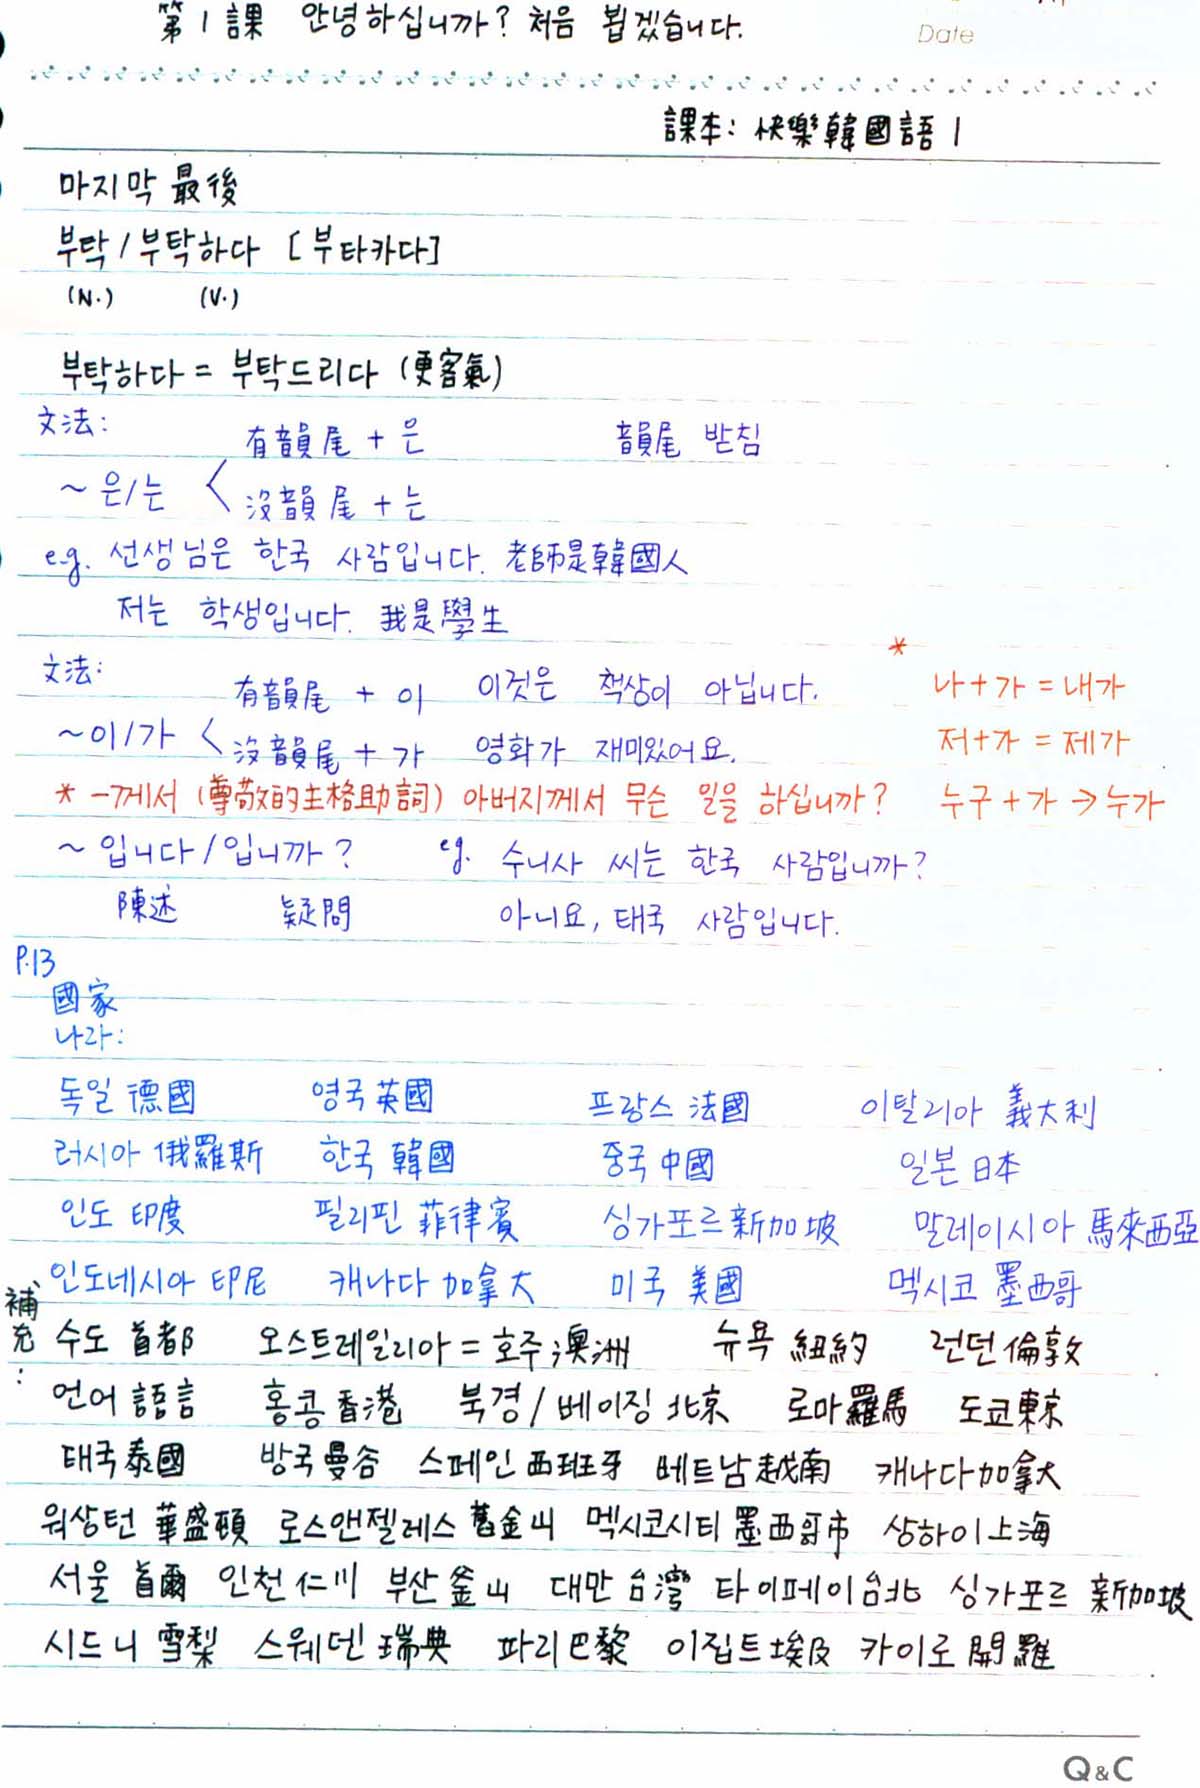 第1課 안녕하십니까? 처음 뵙겠습니다.
Date
課本: 快樂韓國語 1
마지막 最後
부탁 / 부탁하다 [부타카다]
(N.) (V.)
부탁하다 = 부탁드리다 (更客氣)
文法:
有韻尾 + 은 韻尾 받침
~은/는 <
沒韻尾 + 는
e.g. 선생님은 한국 사람입니다. 老師是韓國人
저는 학생입니다. 我是學生
文法: *
有韻尾 + 이 이것은 책상이 아닙니다. 나+가 = 내가
~이/가 <
沒韻尾 + 가 영화가 재미있어요. 저+가 = 제가
* -께서 (尊敬的主格助詞) 아버지께서 무슨 일을 하십니까? 누구+가 → 누가
~입니다/입니까? eg. 수니사 씨는 한국 사람입니까?
陳述 疑問 아니요, 태국 사람입니다.
P.13
國家
나라:
독일 德國 영국 英國 프랑스 法國 이탈리아 義大利
러시아 俄羅斯 한국 韓國 중국 中國 일본 日本
인도 印度 필리핀 菲律賓 싱가포르 新加坡 말레이시아 馬來西亞
인도네시아 印尼 캐나다 加拿大 미국 美國 멕시코 墨西哥
補充:
수도 首都 오스트레일리아 = 호주 澳洲 뉴욕 紐約 런던 倫敦
언어 語言 홍콩 香港 북경/베이징 北京 로마 羅馬 도쿄 東京
태국 泰國 방국 曼谷 스페인 西班牙 베트남 越南 캐나다 加拿大
워싱턴 華盛頓 로스앤젤레스 舊金山 멕시코시티 墨西哥市 상하이 上海
서울 首爾 인천 仁川 부산 釜山 대만 台灣 타이페이 台北 싱가포르 新加坡
시드니 雪梨 스웨덴 瑞典 파리 巴黎 이집트 埃及 카이로 開羅
Q&C